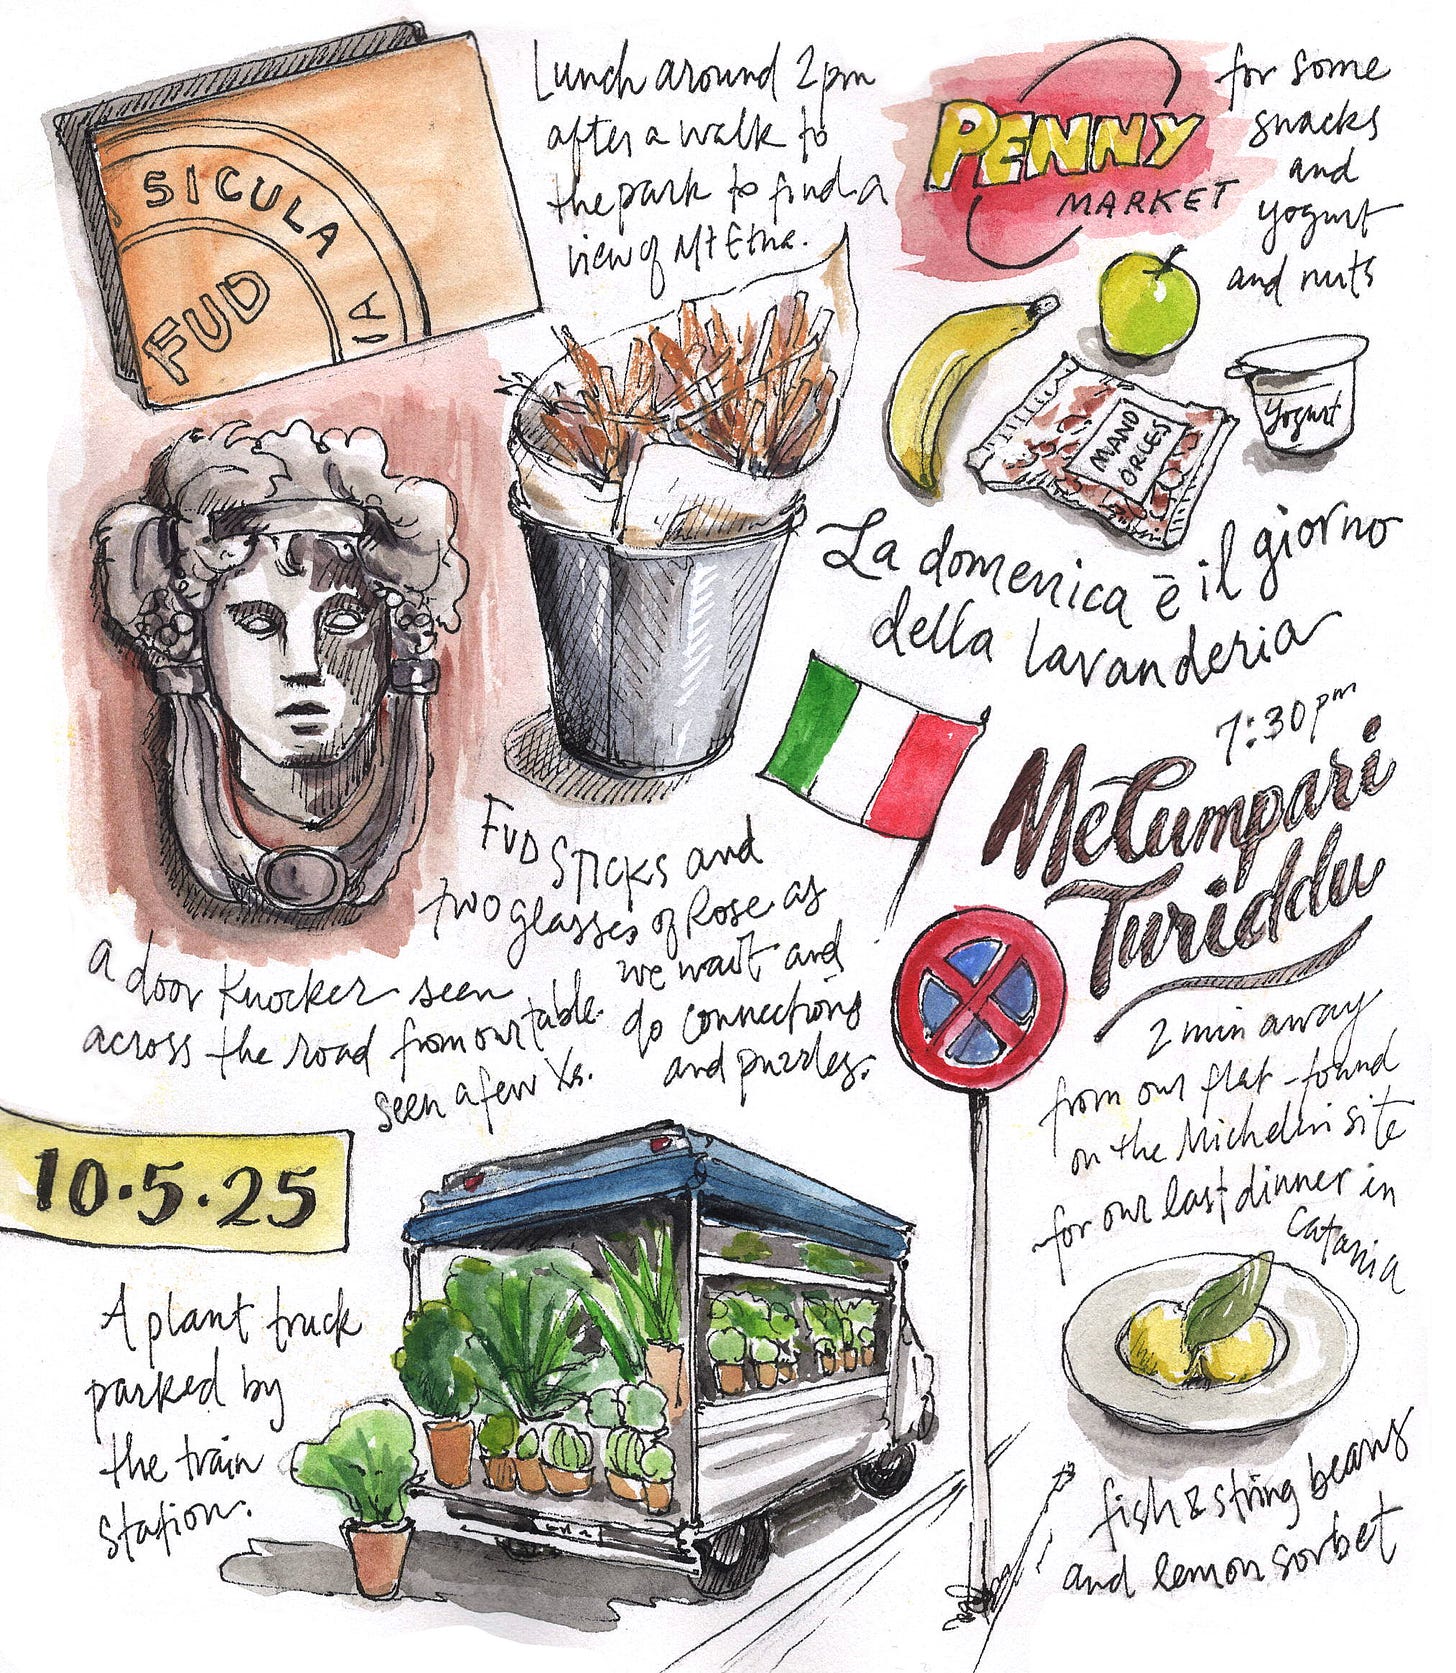 SICULA
FUD
IA
Lunch around 2pm
after a walk to
the park to find a
view of Mt Etna.
PENNY
MARKET
for some
snacks
and
yogurt
and nuts
MAND
ORLES
Yogurt
La domenica è il giorno
della lavanderia
7:30pm
McCumpari
Turiddu
FUD STICKS and
two glasses of Rose as
we wait and
do connections
and puzzles.
a door knocker seen
across the road from our table.
seen a few Xs.
2 min away
from our flat - found
on the Michelin site
for our last dinner in
Catania
10.5.25
A plant truck
parked by
the train
station.
fish & string beans
and lemon sorbet